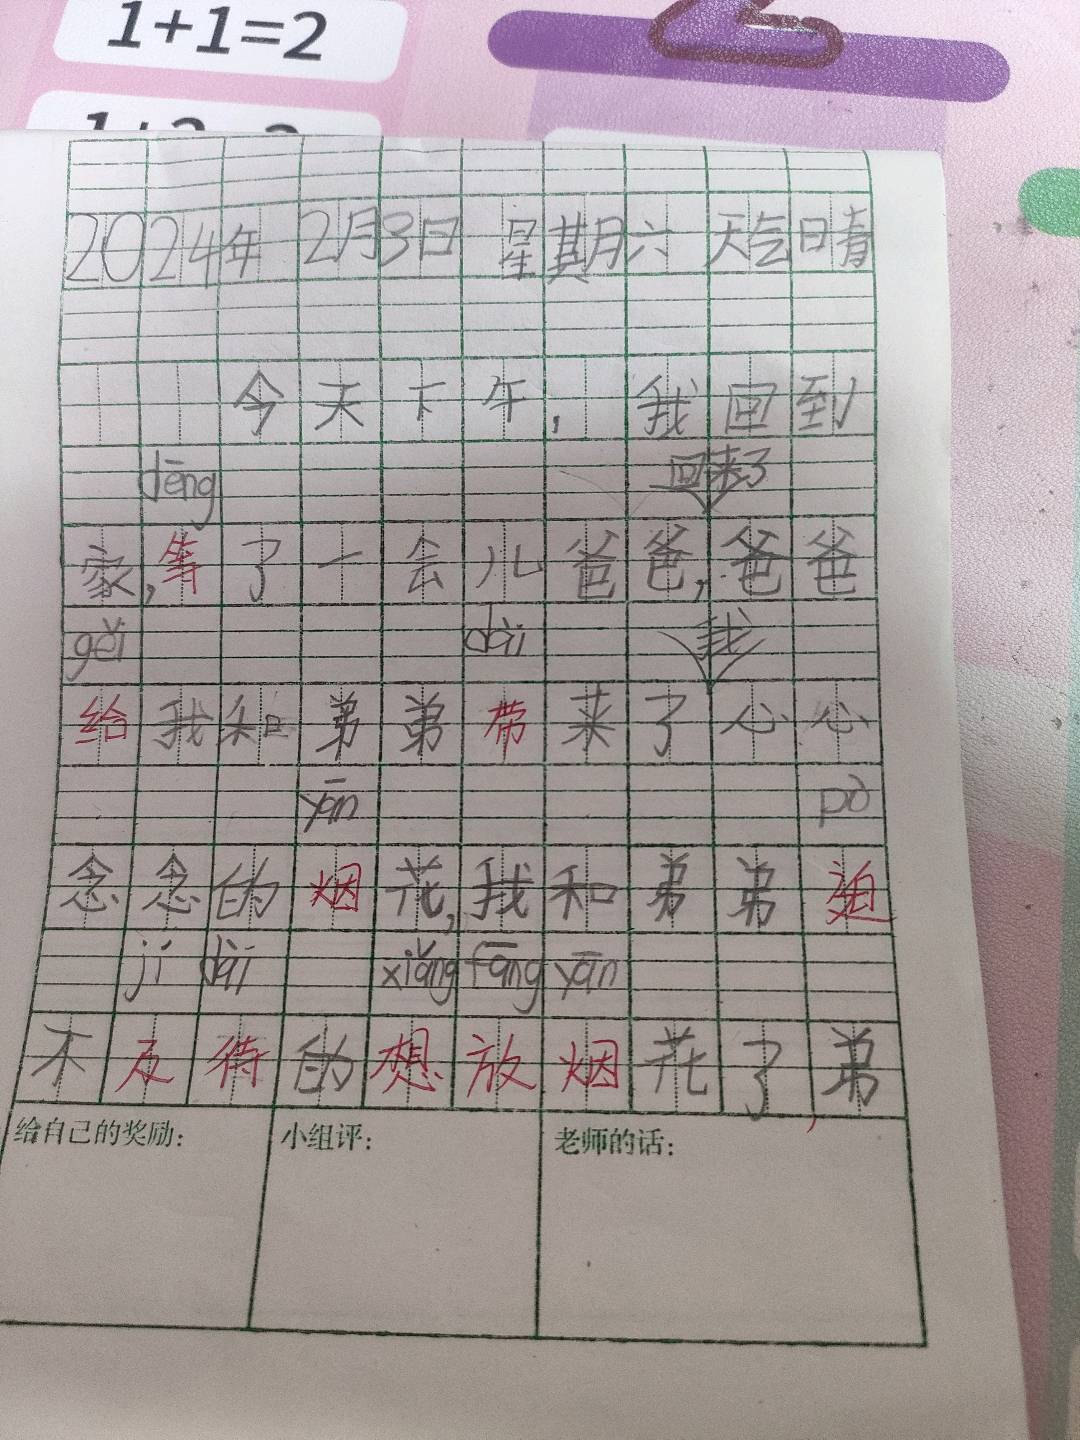 1+1=2
2024年 2月3日 星期六 天气晴
今天下午，我回到
dēng 回来了
家，等了一会儿爸爸，爸爸
gěi dài 我
给我和弟弟带来了心心
yān pò
念念的烟花，我和弟弟迫
jí dài xiǎng fāng yān
不及待的想放烟花了，弟
给自己的奖励： 小组评： 老师的话：